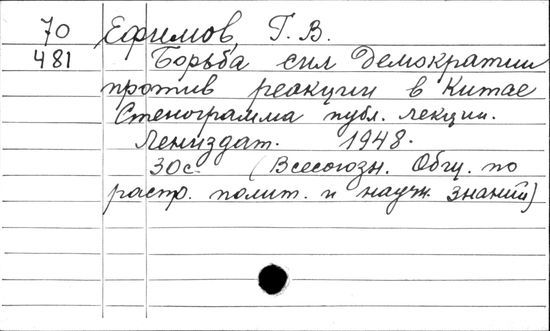 70 Ефимов, Г. В.
481 Борьба сил Демократии
против реакции в Китае
Стенограмма публ. лекции.
Лениздат. 1948.
30с. (Всесоюзн. Общ. по
распр. полит. и научн. знаний)